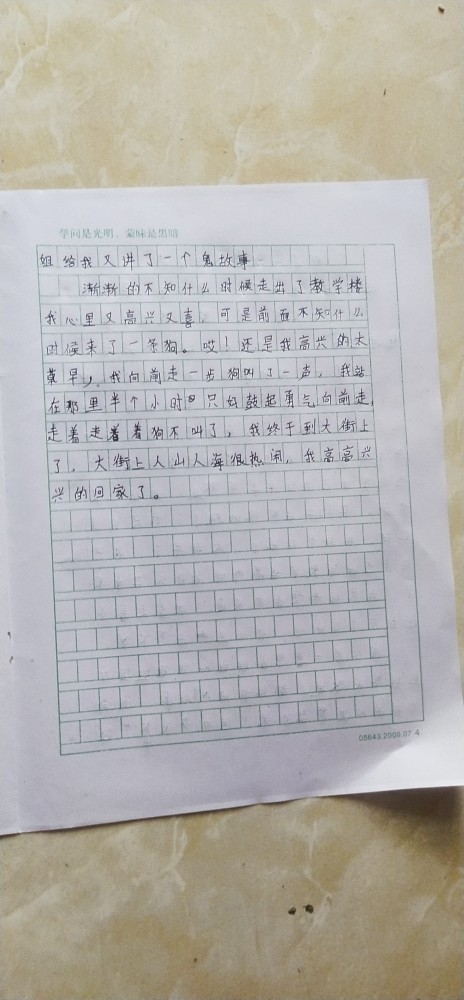 学问是光明，蒙昧是黑暗
姐给我又讲了一个鬼故事
渐渐的不知什么时候走出了教学楼
我心里又高兴又喜，可是前面不知什么
时候来了一条狗。哎！还是我高兴的太
莫早，我向前走一步狗叫了一声，我站
在那里半个小时只好鼓起勇气向前走，
走着走着着狗不叫了，我终于到大街上
了，大街上人山人海很热闹，我高高兴
兴的回家了。
05643.2009.07.4